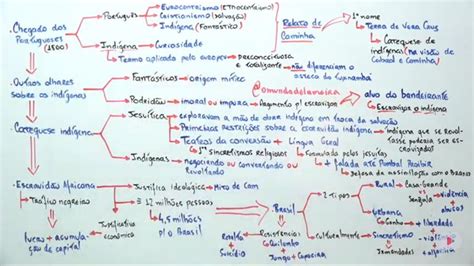 Chegada dos Portugueses (1500)
Português
Eurocentrismo (Etnocentrismo)
Cristianismo (Salvação)
Indígena (Fantástico)
Relato de Caminha
1º nome
Terra de Vera Cruz
Catequese de indígenas (na visão de Cabral e Caminha)
Indígena
Curiosidade
Termo aplicado pelo europeu
preconceituosa e totalizante
não diferenciam o
Outros olhares sobre os indígenas
Fantásticos
origem mítica
Podridão
imoral ou impura
argumento p/ escravizar
alvo da bandeirante
Escravizar o indígena
Catequese indígena
Jesuítas
Exploravam a mão de obra indígena em troca da salvação
Primeiras restrições sobre a escravidão indígena
Indígena que se revoltasse poderia ser escravizado
Teatros da conversão
Língua Geral
1º sincretismos religiosos
Formulada pelos jesuítas
+ falada até Pombal Proibir
Indígenas
negociando ou conversando ou revoltando
Escravidão Africana
Tráfico negreiro
Justifica Ideológica
Mito de Cam
± 12 milhões pessoas
4,5 milhões p/ o Brasil
Justificativa econômica
lucros + acumulação de capital
Brasil
2 tipos
Rural
Casa-Grande
Senzala
Urbana
Ganho
+ liberdade
+ abusos
- violência
Resistências
Quilombo
Revolta + Suicídio
Fuga + Capoeira
Culturalmente
Sincretismo
Irmandades